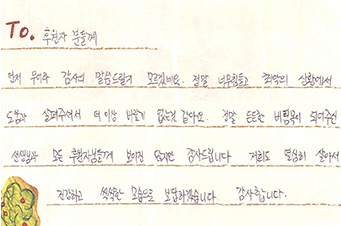 To. 후원자 분들께
먼저 무어라 감사의 말씀드릴지 모르겠네요. 정말 너무힘들고 최악의 상황에서
도움과 살펴주셔서 더 이상 바랄게 없는것 같아요. 정말 든든한 버팀목이 되어주신
선생님과 모든 후원자님들께 보이진 않지만 감사드립니다 저희도 열심히 살아서
건강하고 씩씩한 모습으로 보답하겠습니다. 감사합니다.